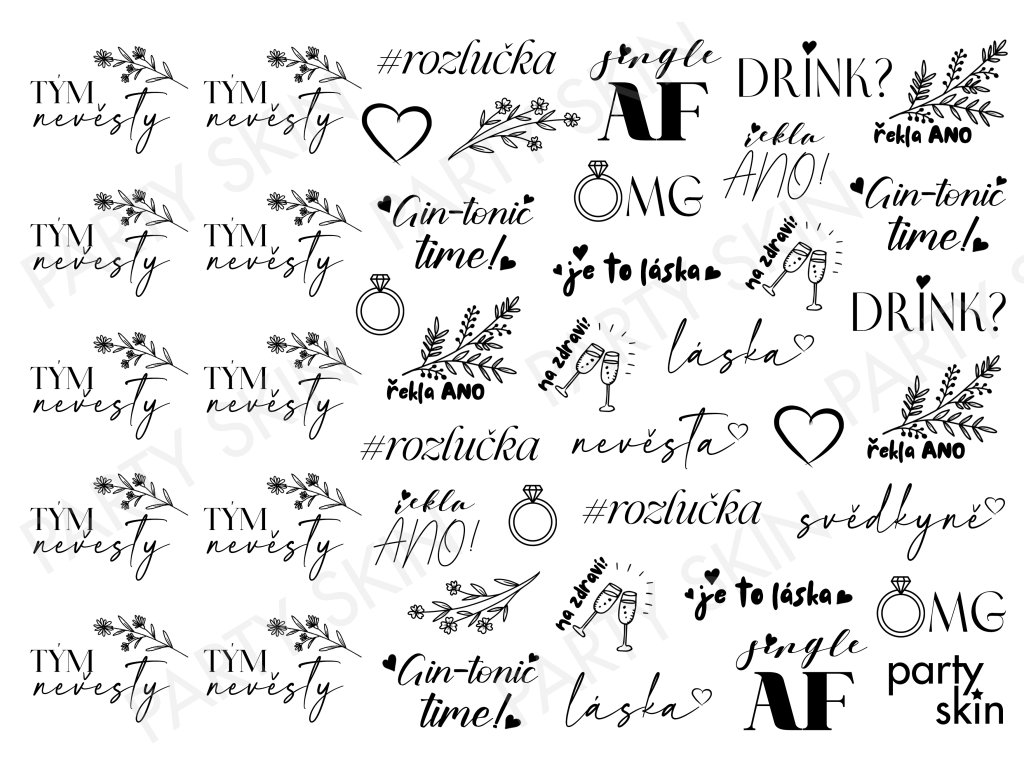 TÝM
nevěsty
TÝM
nevěsty
#rozlučka
single
AF
DRINK?
řekla ANO
řekla
ANO!
OMG
TÝM
nevěsty
TÝM
nevěsty
Gin-tonic
time!
je to láska
na zdraví!
Gin-tonic
time!
DRINK?
TÝM
nevěsty
TÝM
nevěsty
řekla ANO
na zdraví!
láska
řekla ANO
#rozlučka
nevěsta
TÝM
nevěsty
TÝM
nevěsty
řekla
ANO!
#rozlučka
svědkyně
na zdraví!
je to láska
OMG
TÝM
nevěsty
TÝM
nevěsty
Gin-tonic
time!
láska
single
AF
party
skin
PARTY SKIN
PARTY SKIN
PARTY SKIN
PARTY SKIN
PARTY SKIN
PARTY SKIN
PARTY SKIN
PARTY SKIN
PARTY SKIN